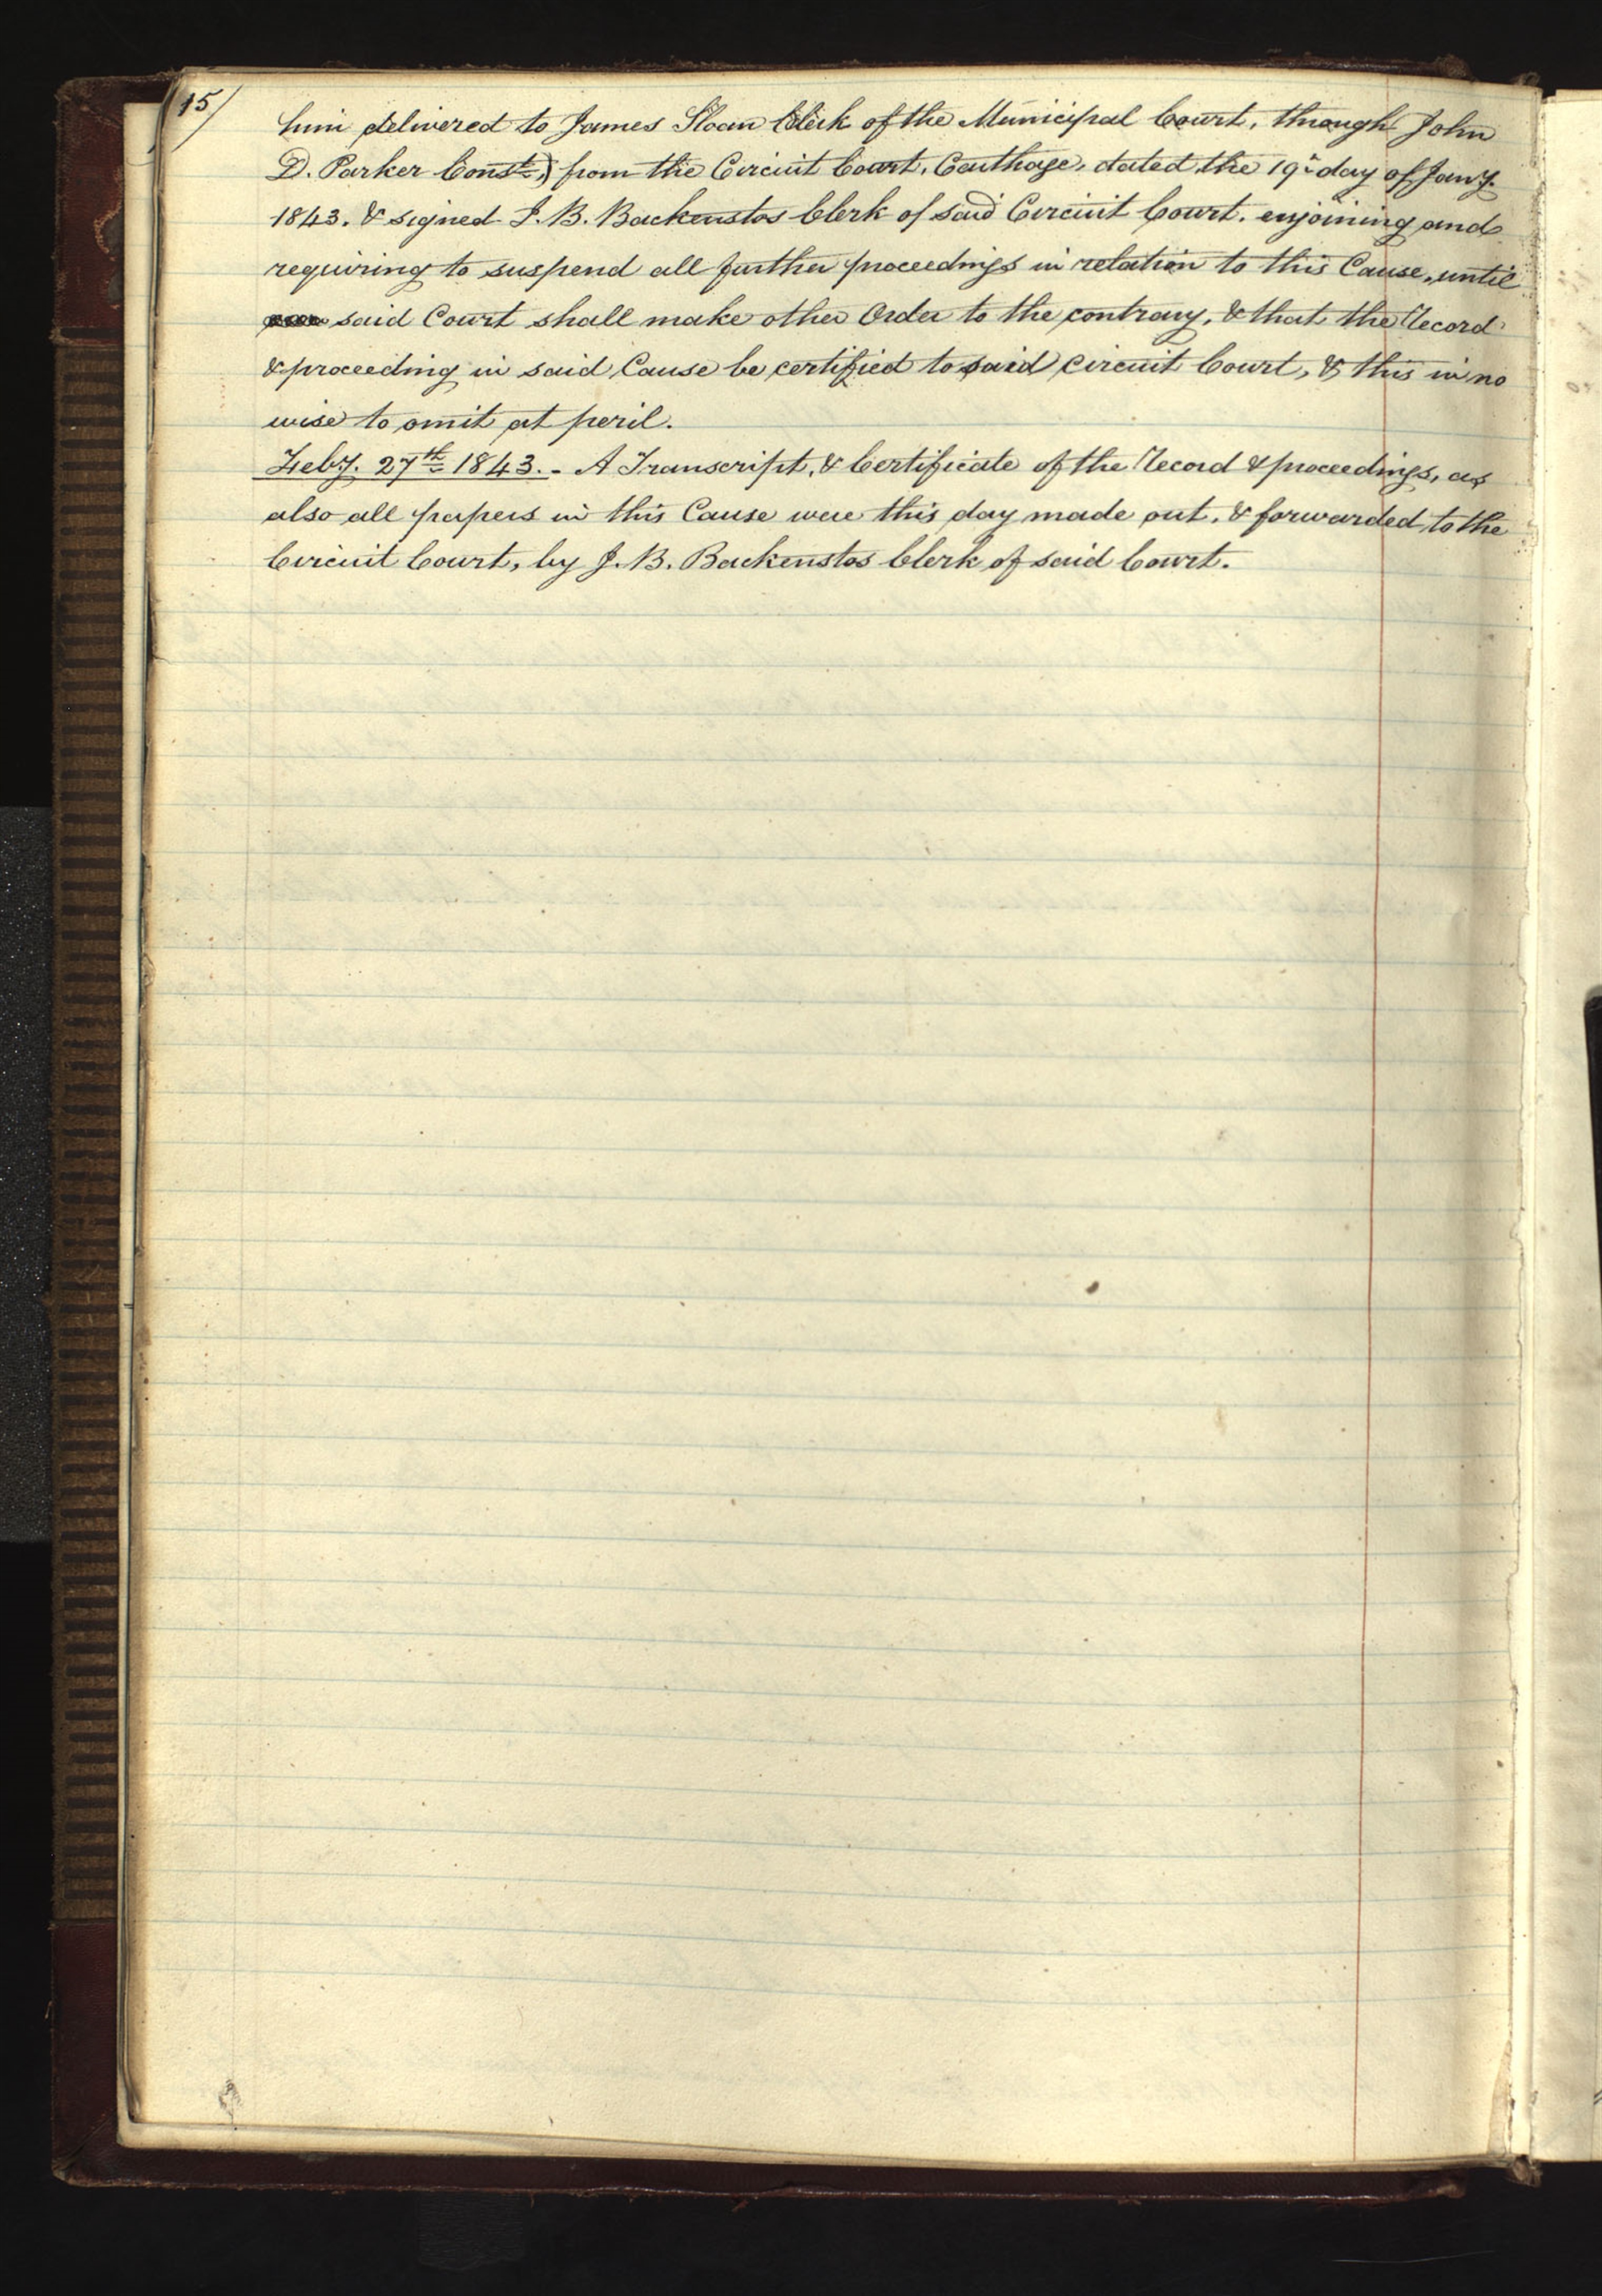 15/
him delivered to James Sloan Clerk of the Municipal Court, through John
D. Parker Const,) from the Circuit Court, Carthage, dated the 19th day of Jany.
1843. & signed J. B. Backenstos Clerk of said Circuit Court. enjoining and
requiring to suspend all further proceedings in relation to this Cause, until
said Court shall make other Order to the contrary, & that the Record
& proceeding in said Cause be certified to said Circuit Court, & this in no
wise to omit at peril.
Feby. 27th 1843. - A Transcript, & Certificate of the Record & proceedings, as
also all papers in this Cause were this day made out, & forwarded to the
Circuit Court, by J. B. Backenstos Clerk of said Court.